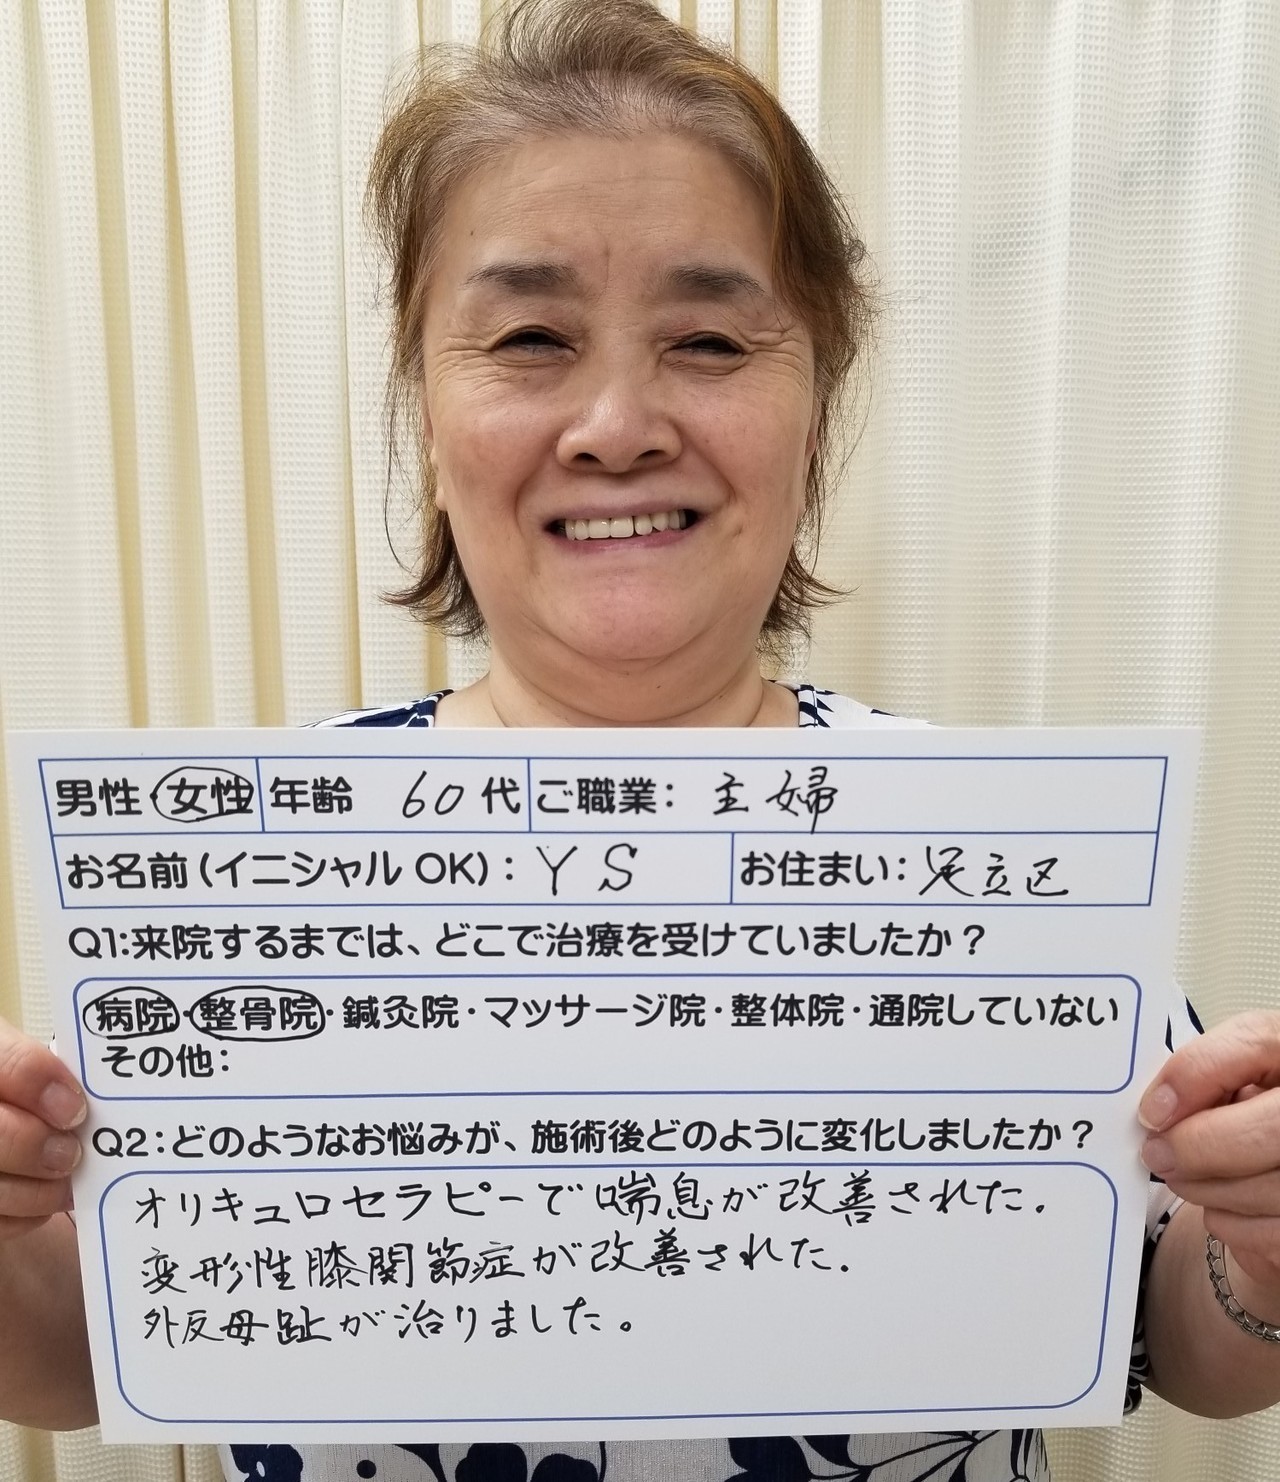 男性・女性 年齢 60代 ご職業：主婦
お名前（イニシャルOK）：YS お住まい：足立区
Q1:来院するまでは、どこで治療を受けていましたか？
病院・整骨院・鍼灸院・マッサージ院・整体院・通院していない
その他：
Q2：どのようなお悩みが、施術後どのように変化しましたか？
オリキュロセラピーで喘息が改善された.
変形性膝関節症が改善された.
外反母趾が治りました。